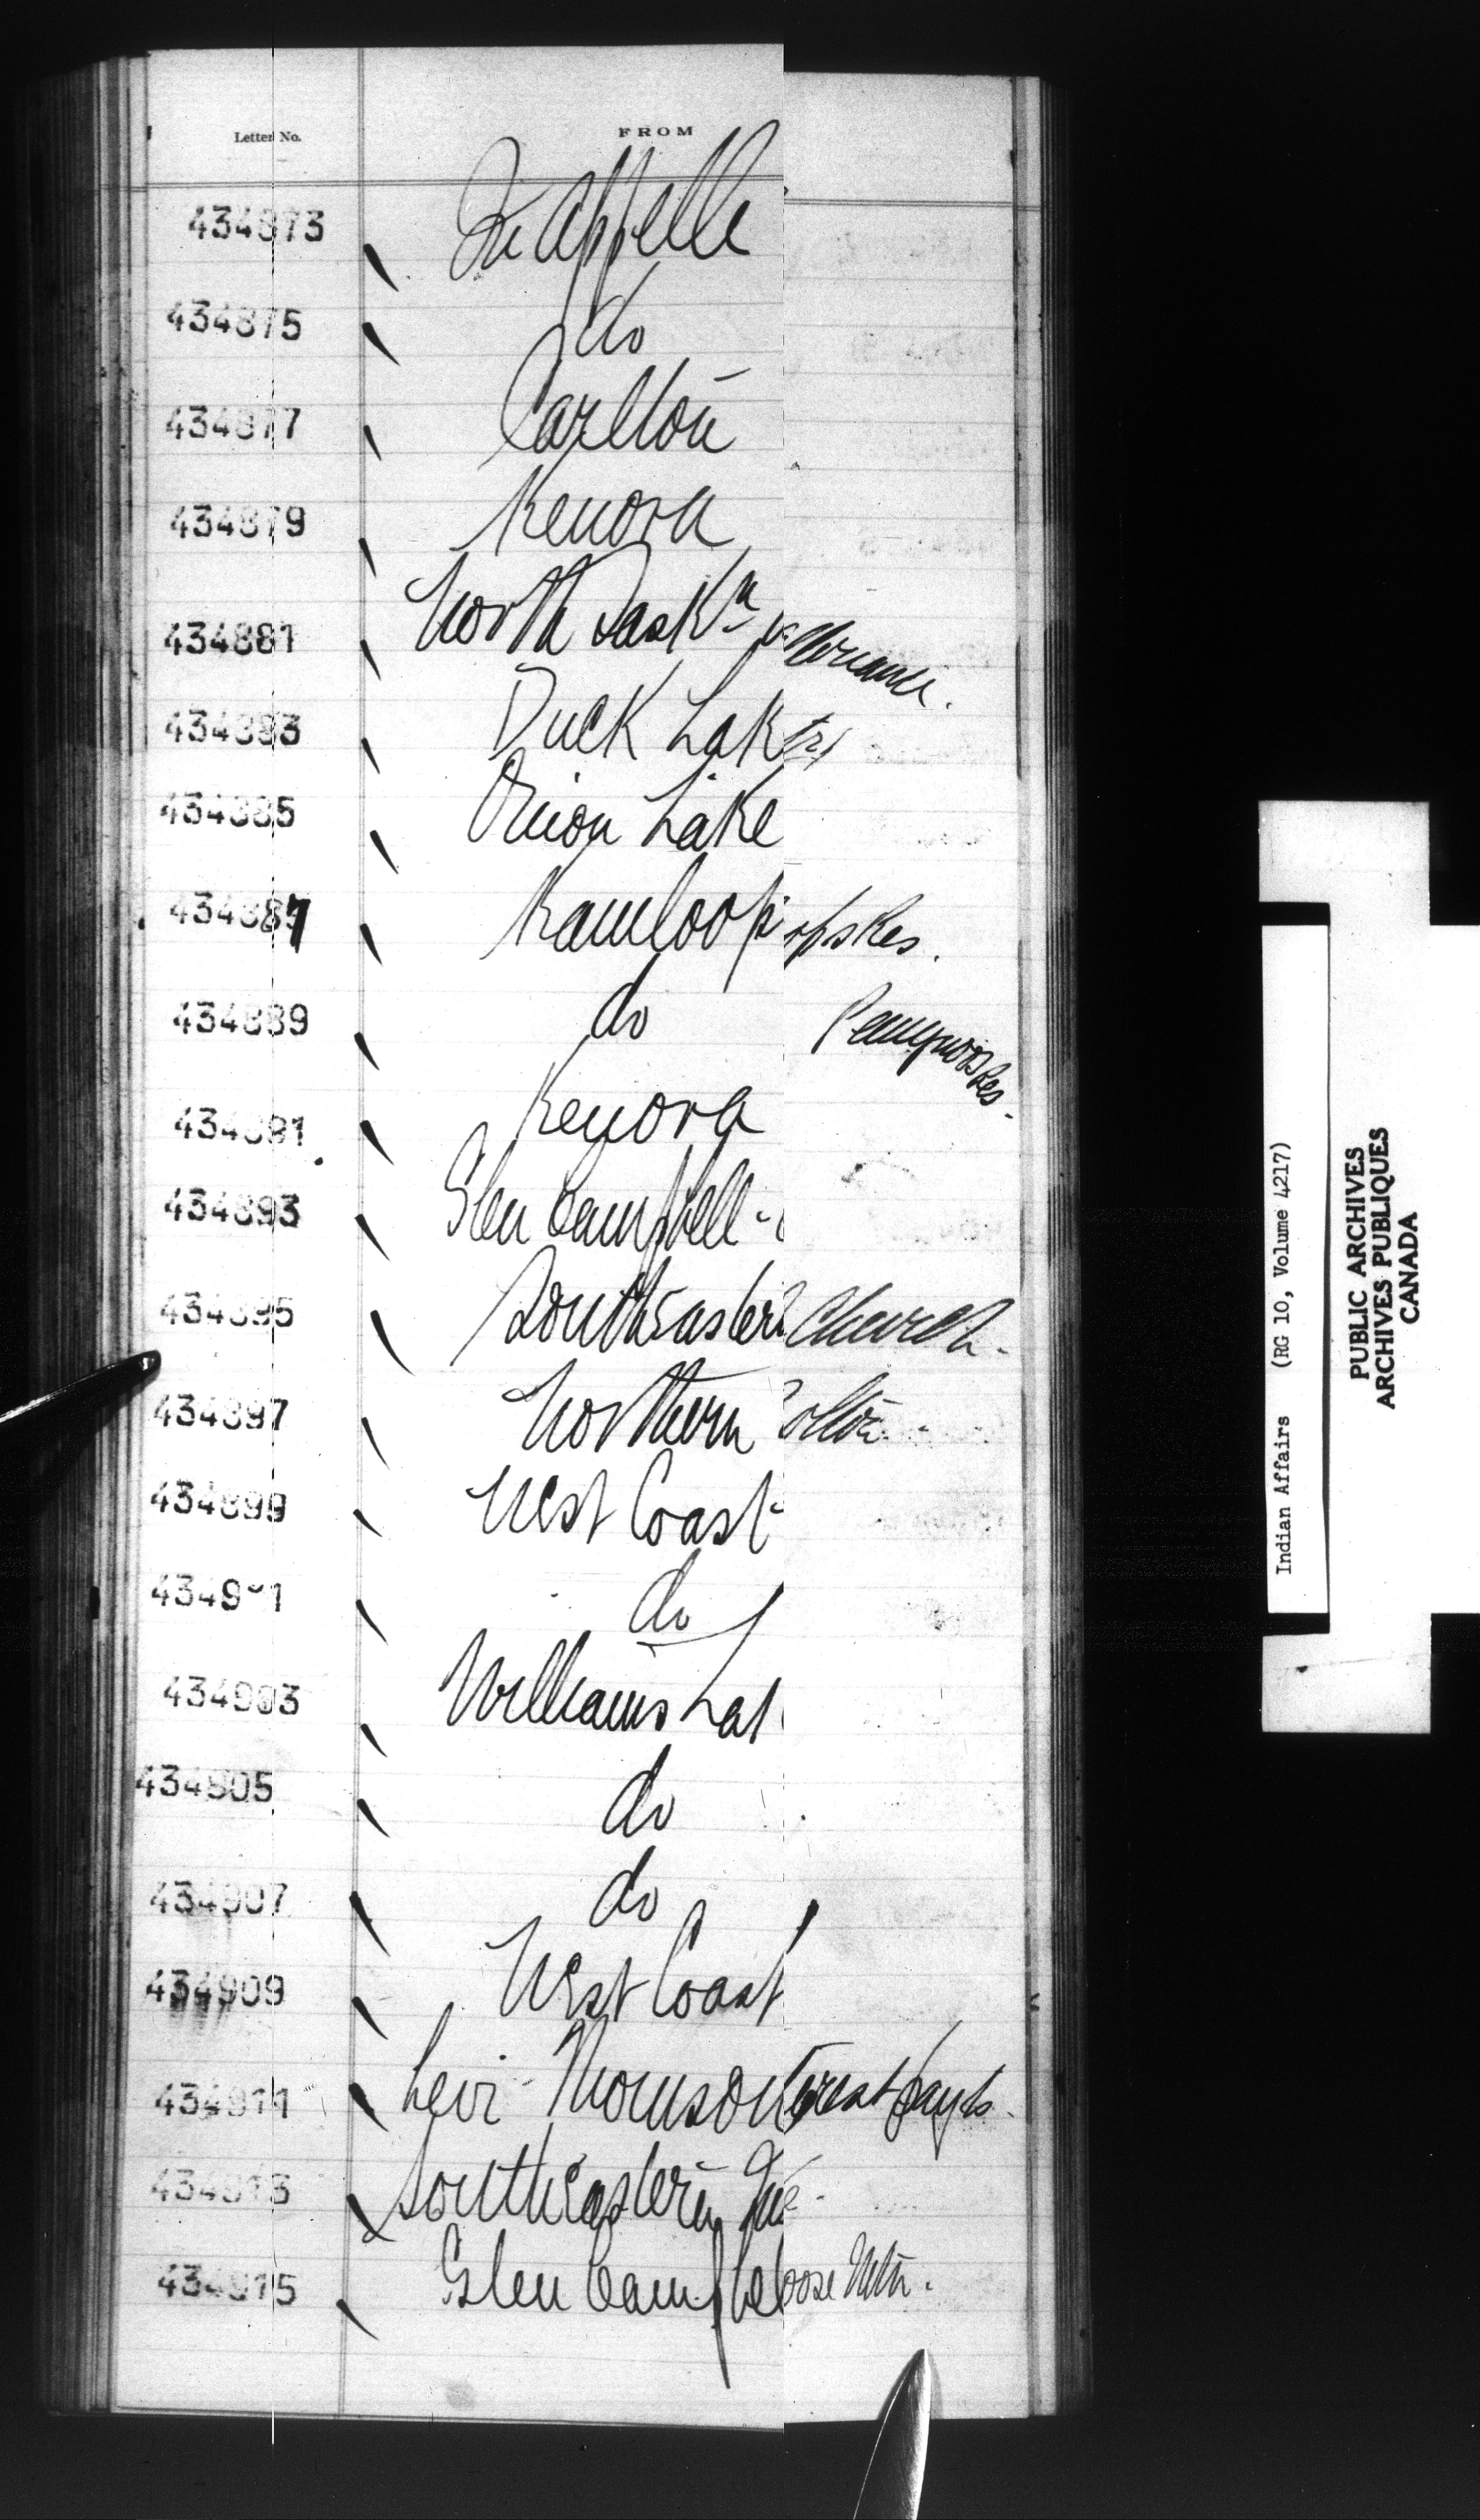 Letter No. FROM
434873 Qu'Appelle
434875 do
434877 Carlton
434879 Kenora
434881 North Saskn
434883 Duck Lak
434885 Onion Lake
434887 Kamloops Res.
434889 do
434891 Kenora
434893 Glen Campbell
434895 Southeastern Church.
434897 Northern
434899 West Coast
434901 do
434903 Williams Lak
434905 do
434907 do
434909 West Coast
434911 Levi Thomson Treat Payts.
434913 Southeastern
434915 Glen Campbel oose Mtn.
Indian Affairs (RG 10, Volume 4217)
PUBLIC ARCHIVES
ARCHIVES PUBLIQUES
CANADA